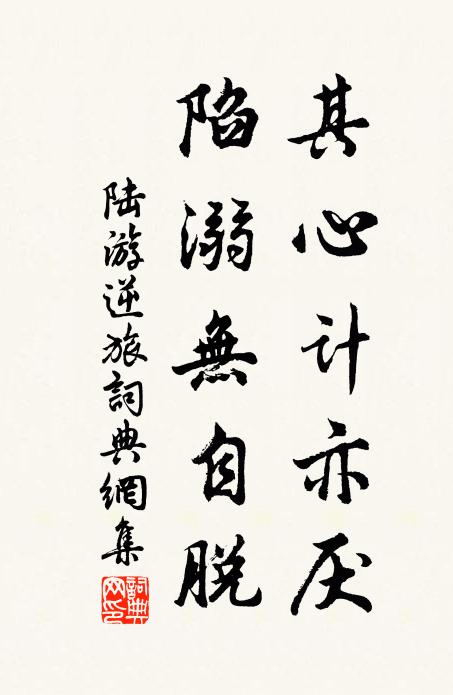 其心计亦厌
陷溺無自脱
陆游逆旅詞典網集
詞典网印